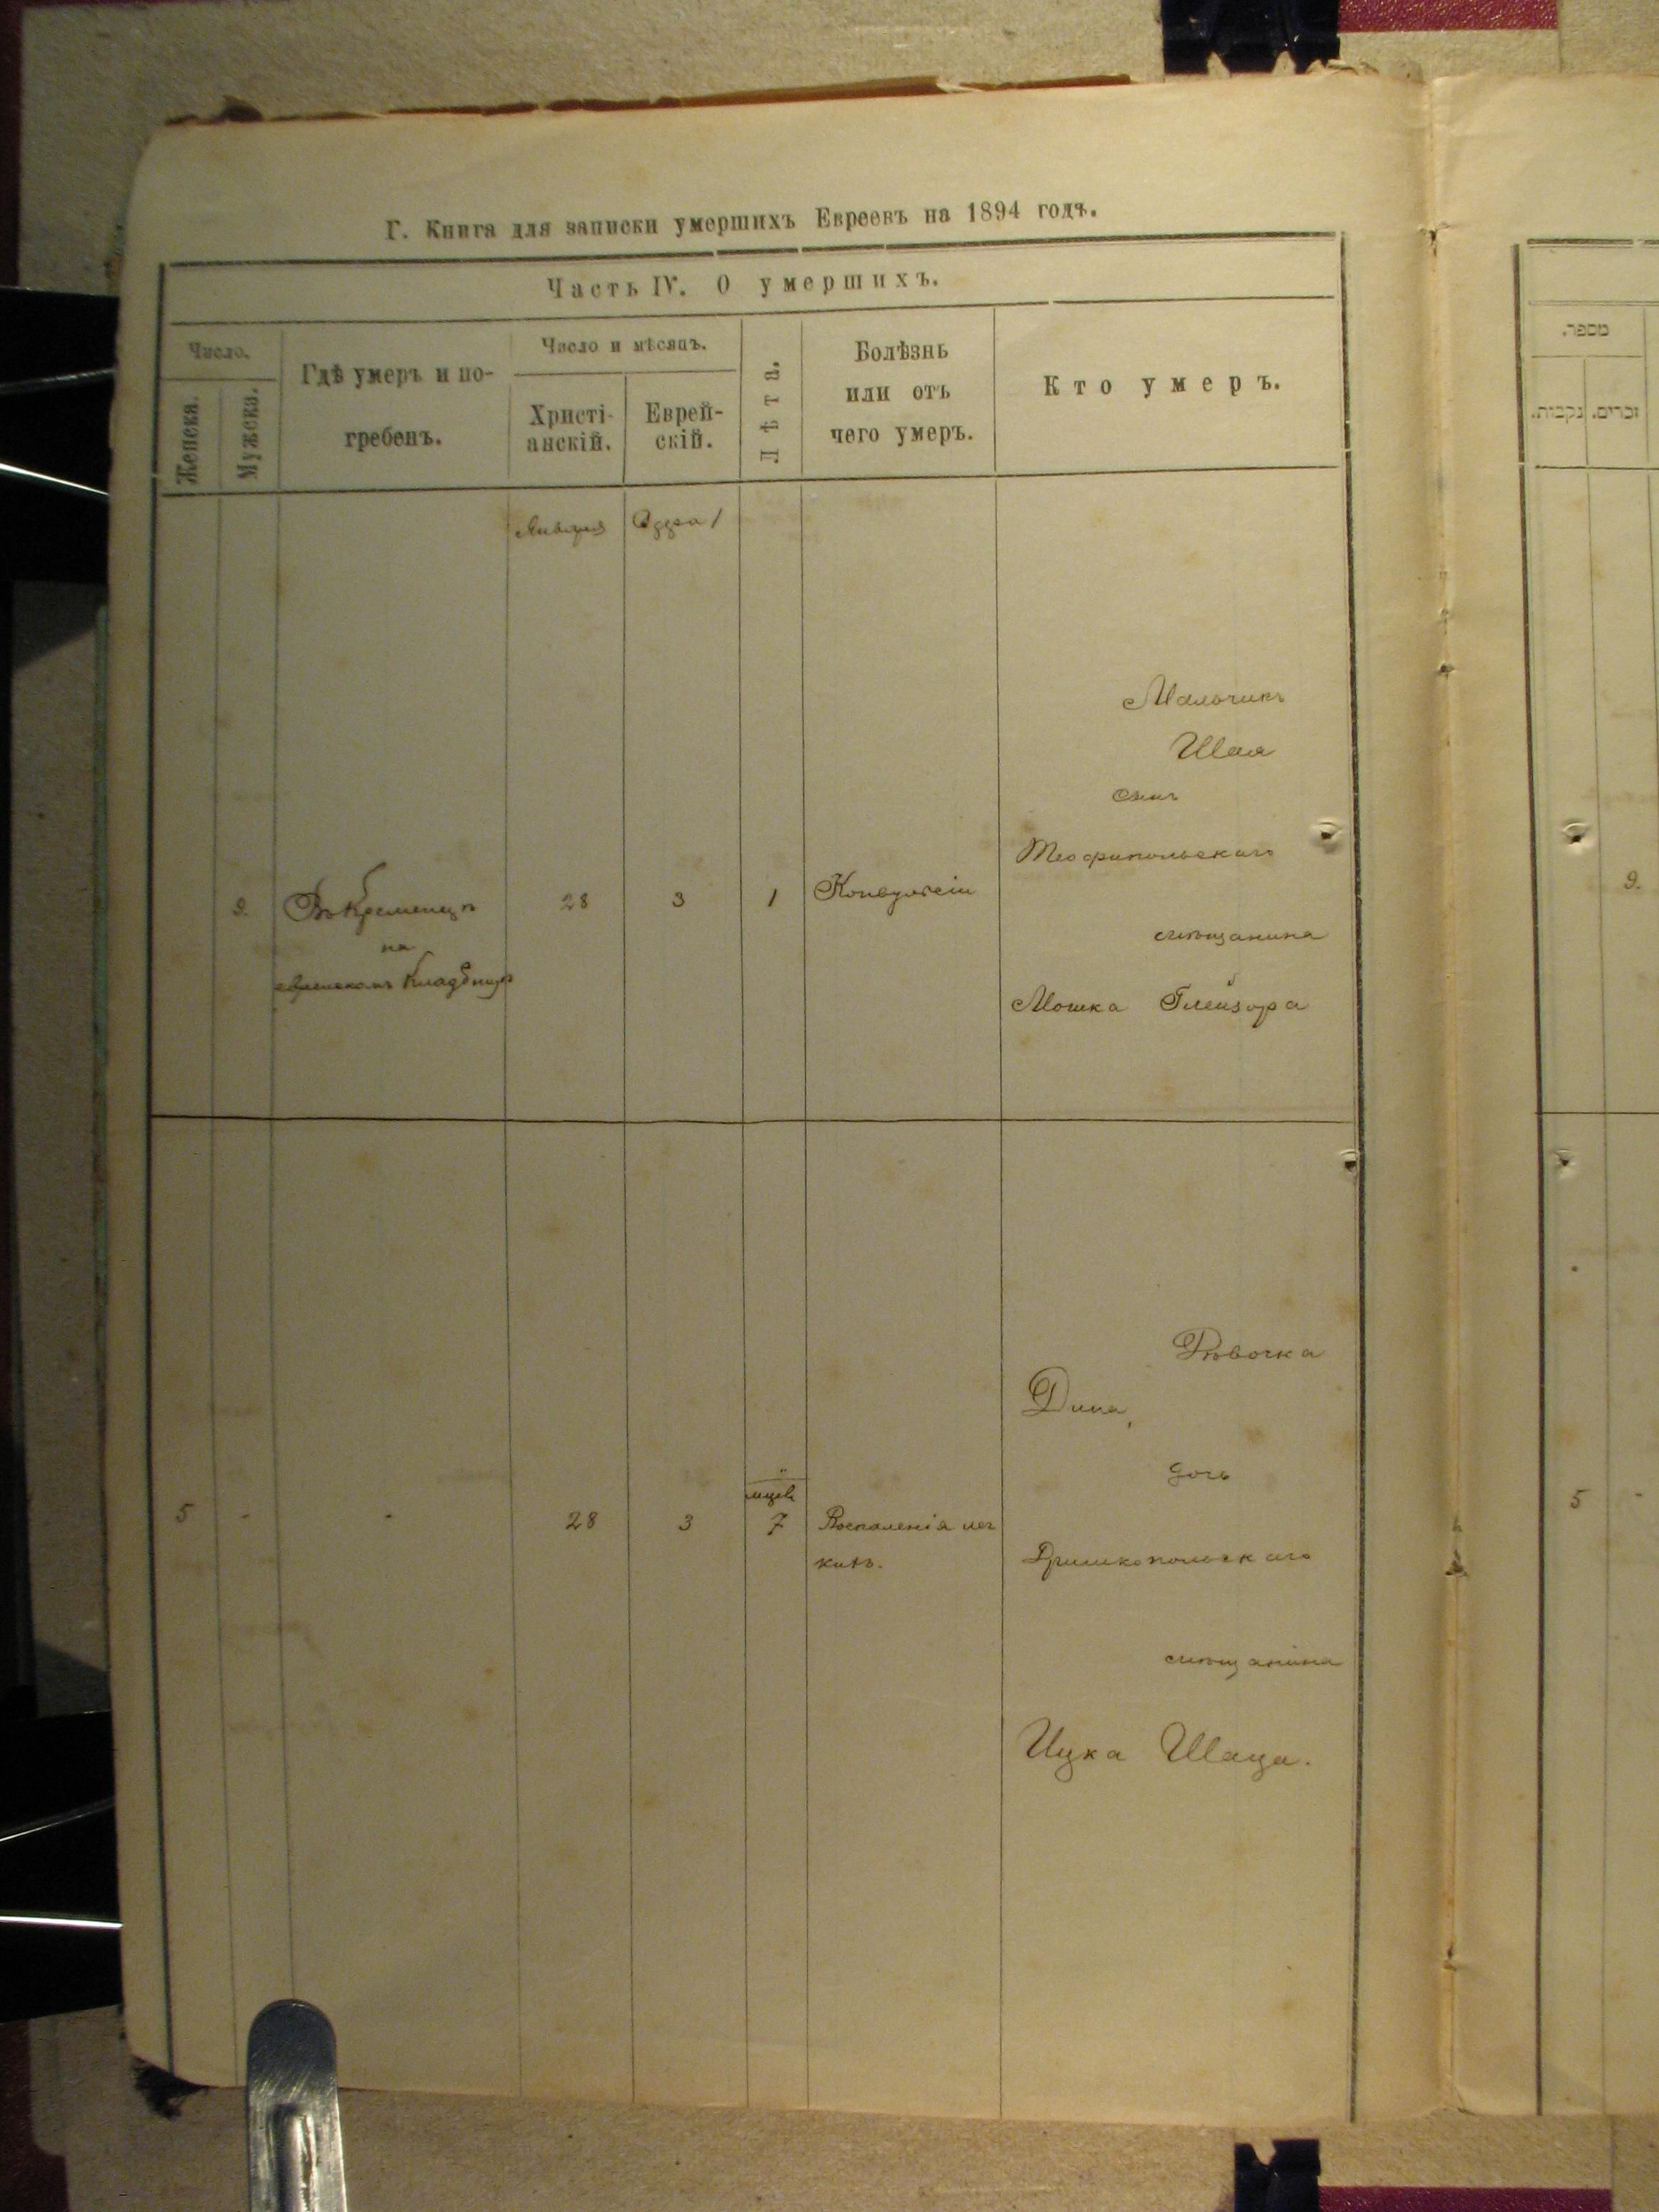 Г. Книга для записки умершихъ Евреевъ на 1894 годъ.
Часть IV. О умершихъ.
Число.
Женска.
Мужска.
Гдѣ умеръ и по-
гребенъ.
Число и мѣсяцъ.
Христі-
анскій.
Еврей-
скій.
Лѣта.
Болѣзнь
или отъ
чего умеръ.
Кто умеръ.
Января
Мальчикъ
Шая
сынъ
Теофипольскаго
9. Въ Кременцѣ 28 3 1 Конвульсіи
мѣщанина
на
еврейскомъ кладбищѣ
Мошка Глейзора
Дѣвочка
Дина,
дочь
мцевъ
5 - - 28 3 7 Воспаленія лег
кихъ.
мѣщанина
Ицка Шаца.
מספר.
נקבות.
זכרים.
9.
5 -